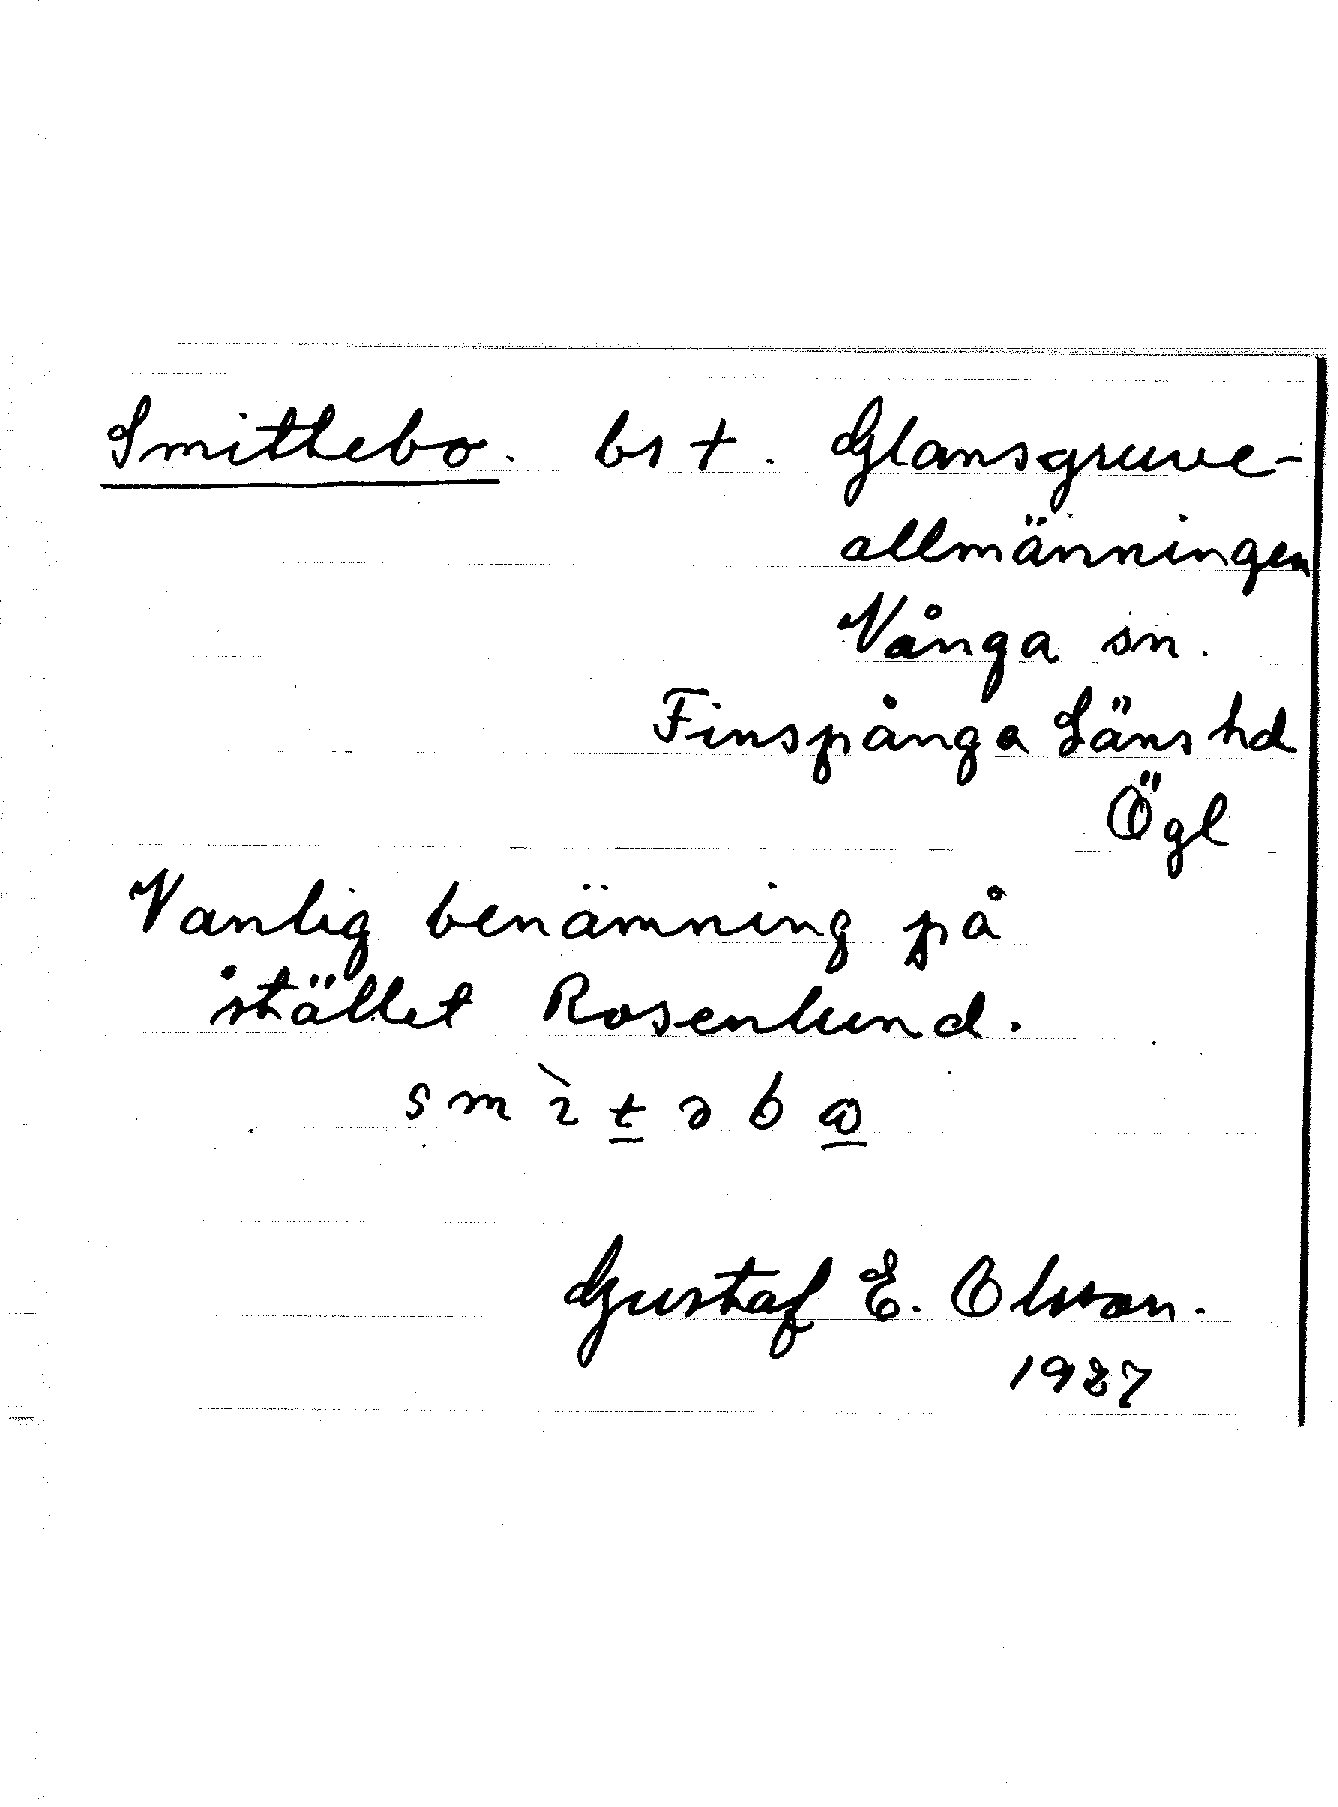 Smittebo. bs +. Glansgruve-
allmänningen
Vånga sn.
Finspånga Läns hd
Ögl
Vanlig benämning på
stället Rosenlund.
s m ì t ə b ω
Gustaf E. Olsson.
1927